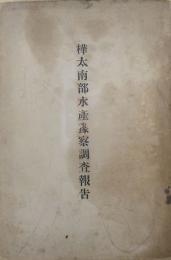 樺太南部水産豫察調査報告